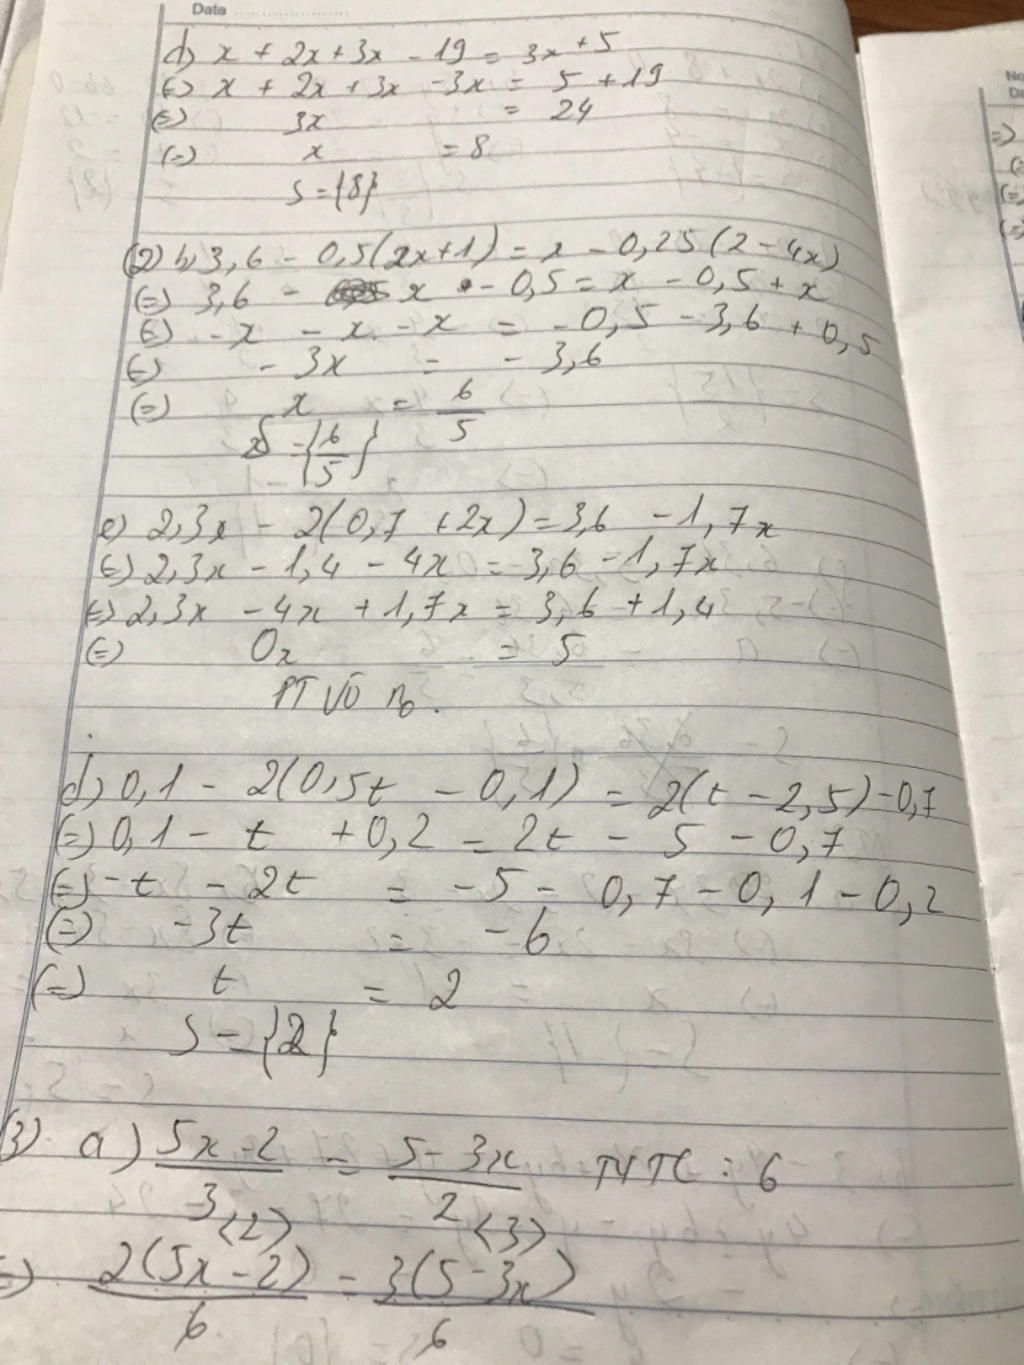 Date
d) x + 2x + 3x - 19 = 3x + 5
(=) x + 2x + 3x - 3x = 5 + 19
(=) 3x = 24
(=) x = 8
S = {8}
(2) b) 3,6 - 0,5(2x+1) = x - 0,25(2-4x)
(=) 3,6 - x - 0,5 = x - 0,5 + x
(=) -x - x - x = -0,5 - 3,6 + 0,5
(=) -3x = -3,6
(=) x = 6/5
S = {6/5}
c) 2,3x - 2(0,7 + 2x) = 3,6 - 1,7x
(=) 2,3x - 1,4 - 4x = 3,6 - 1,7x
(=) 2,3x - 4x + 1,7x = 3,6 + 1,4
(=) 0x = 5
PT VÔ no.
d) 0,1 - 2(0,5t - 0,1) = 2(t - 2,5) - 0,7
(=) 0,1 - t + 0,2 = 2t - 5 - 0,7
(=) -t - 2t = -5 - 0,7 - 0,1 - 0,2
(=) -3t = -6
(=) t = 2
S = {2}
(3) a) (5x-2)/3 = (5-3x)/2 MTC : 6
<2> <3>
(=) 2(5x-2)/6 = 3(5-3x)/6